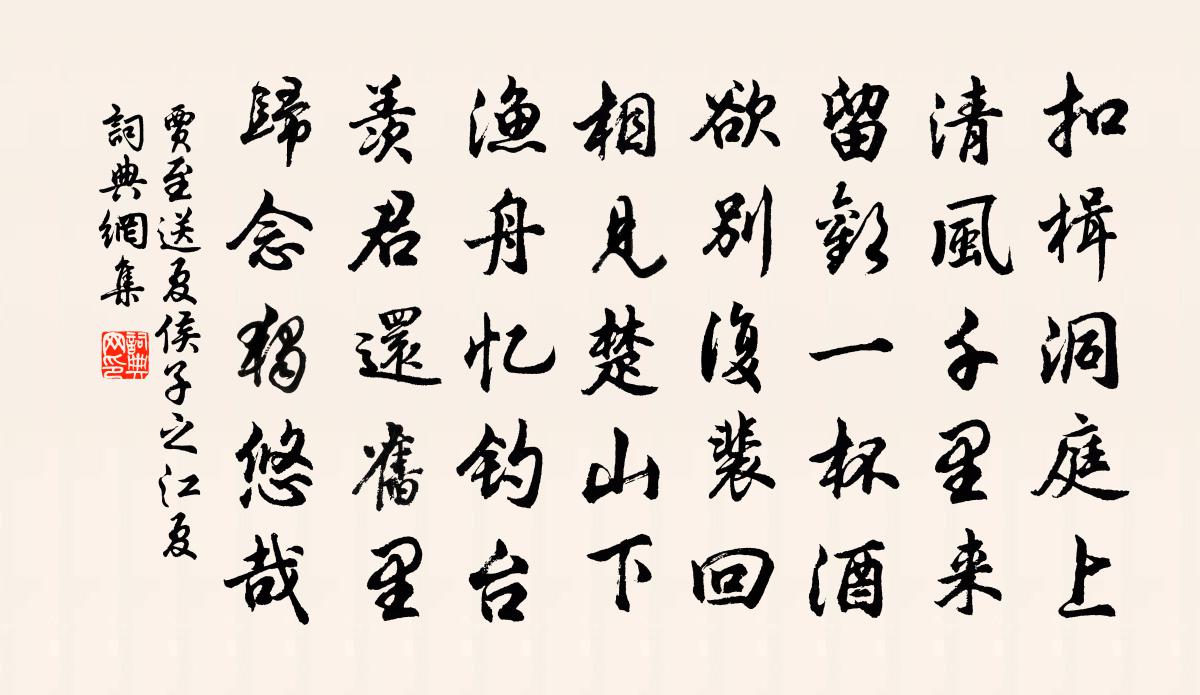 扣楫洞庭上
清風千里来
留歡一杯酒
欲別復裴回
相見楚山下
漁舟忆釣台
羨君還舊里
歸念獨悠哉
賈至送夏侯子之江夏
詞典網集
詞典网印